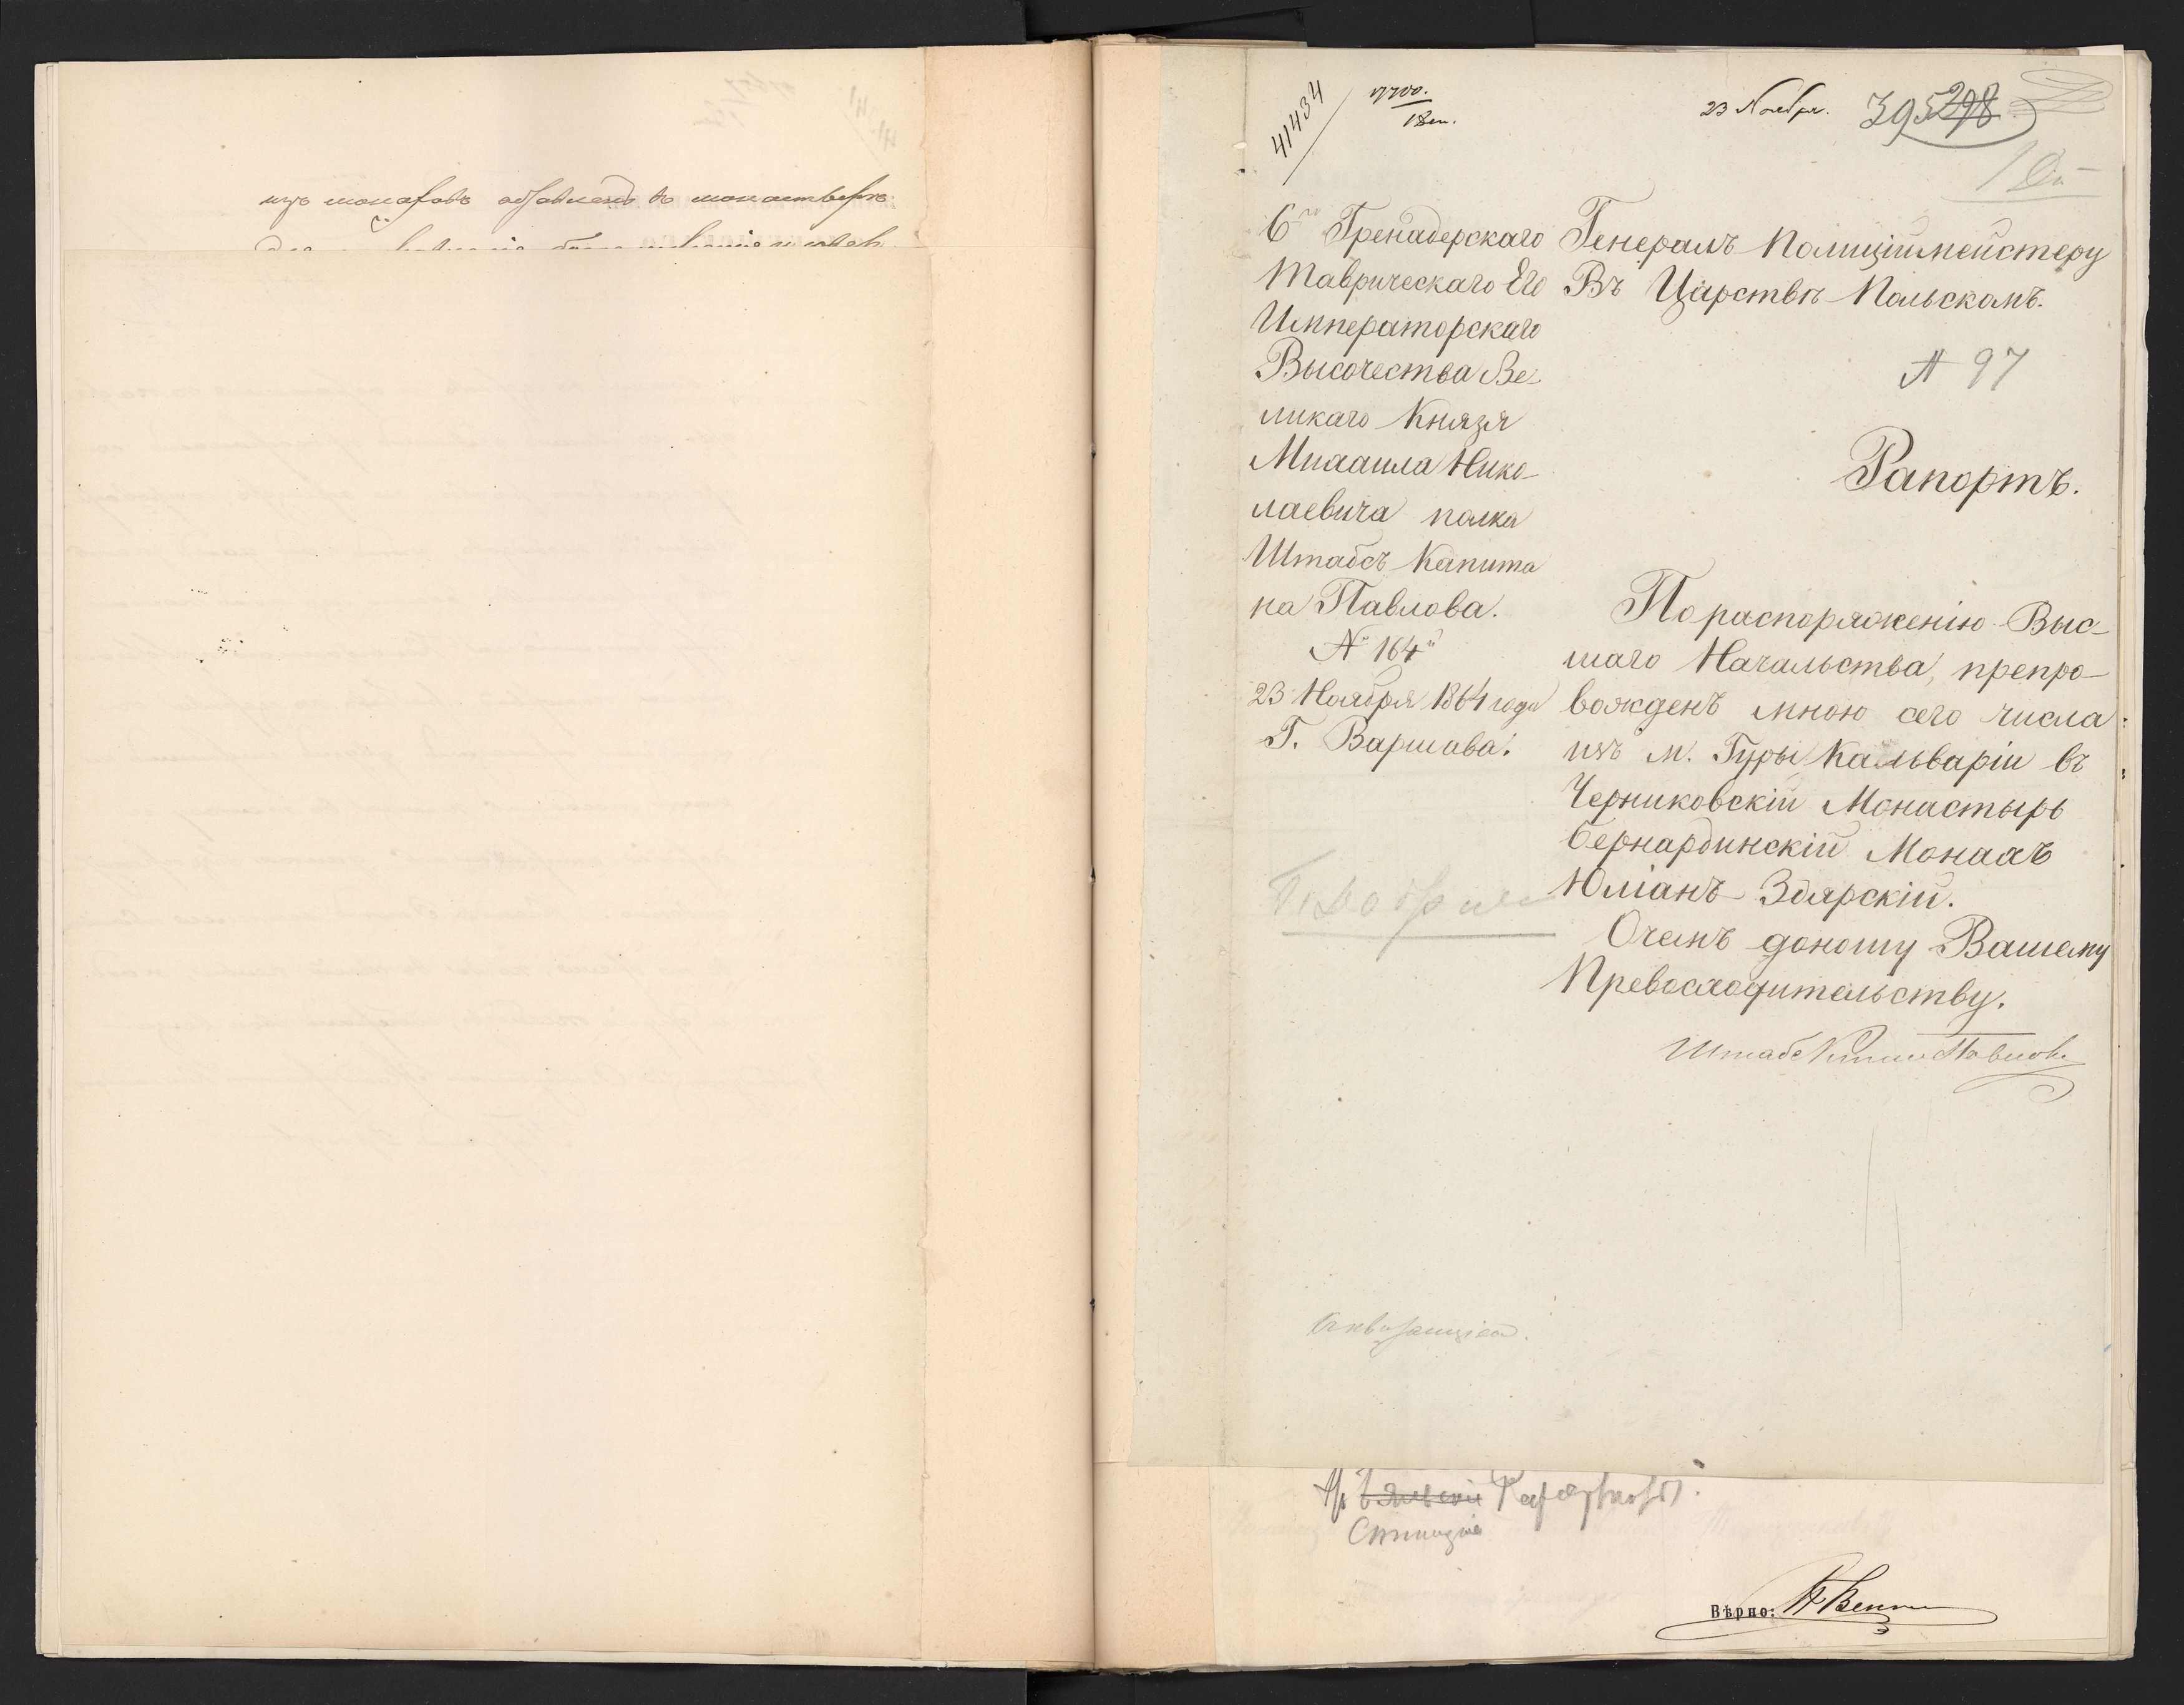 изъ монаховъ
41434
23 Ноября.
395
298
6го Гренадерскаго
Таврическаго Его
Императорскаго
Высочества Ве-
ликаго Князя
Михаила Нико-
лаевича полка
Штабсъ Капита
на Павлова.
№ 164й
23 Ноября 1864 года
Г. Варшава.
Генералъ Полиціймейстеру
Въ Царствѣ Польскомъ.
А 97
Рапортъ.
По распоряженію Выс-
шаго Начальства, препро-
вожденъ мною сего числа
изъ м. Гуры Кальваріи въ
Черниковскій Монастырь
бернардинскій Монахъ
Юліанъ Здярскій.
О чемъ доношу Вашему
Превосходительству.
Штабс Капит Павловъ
Вѣрно: